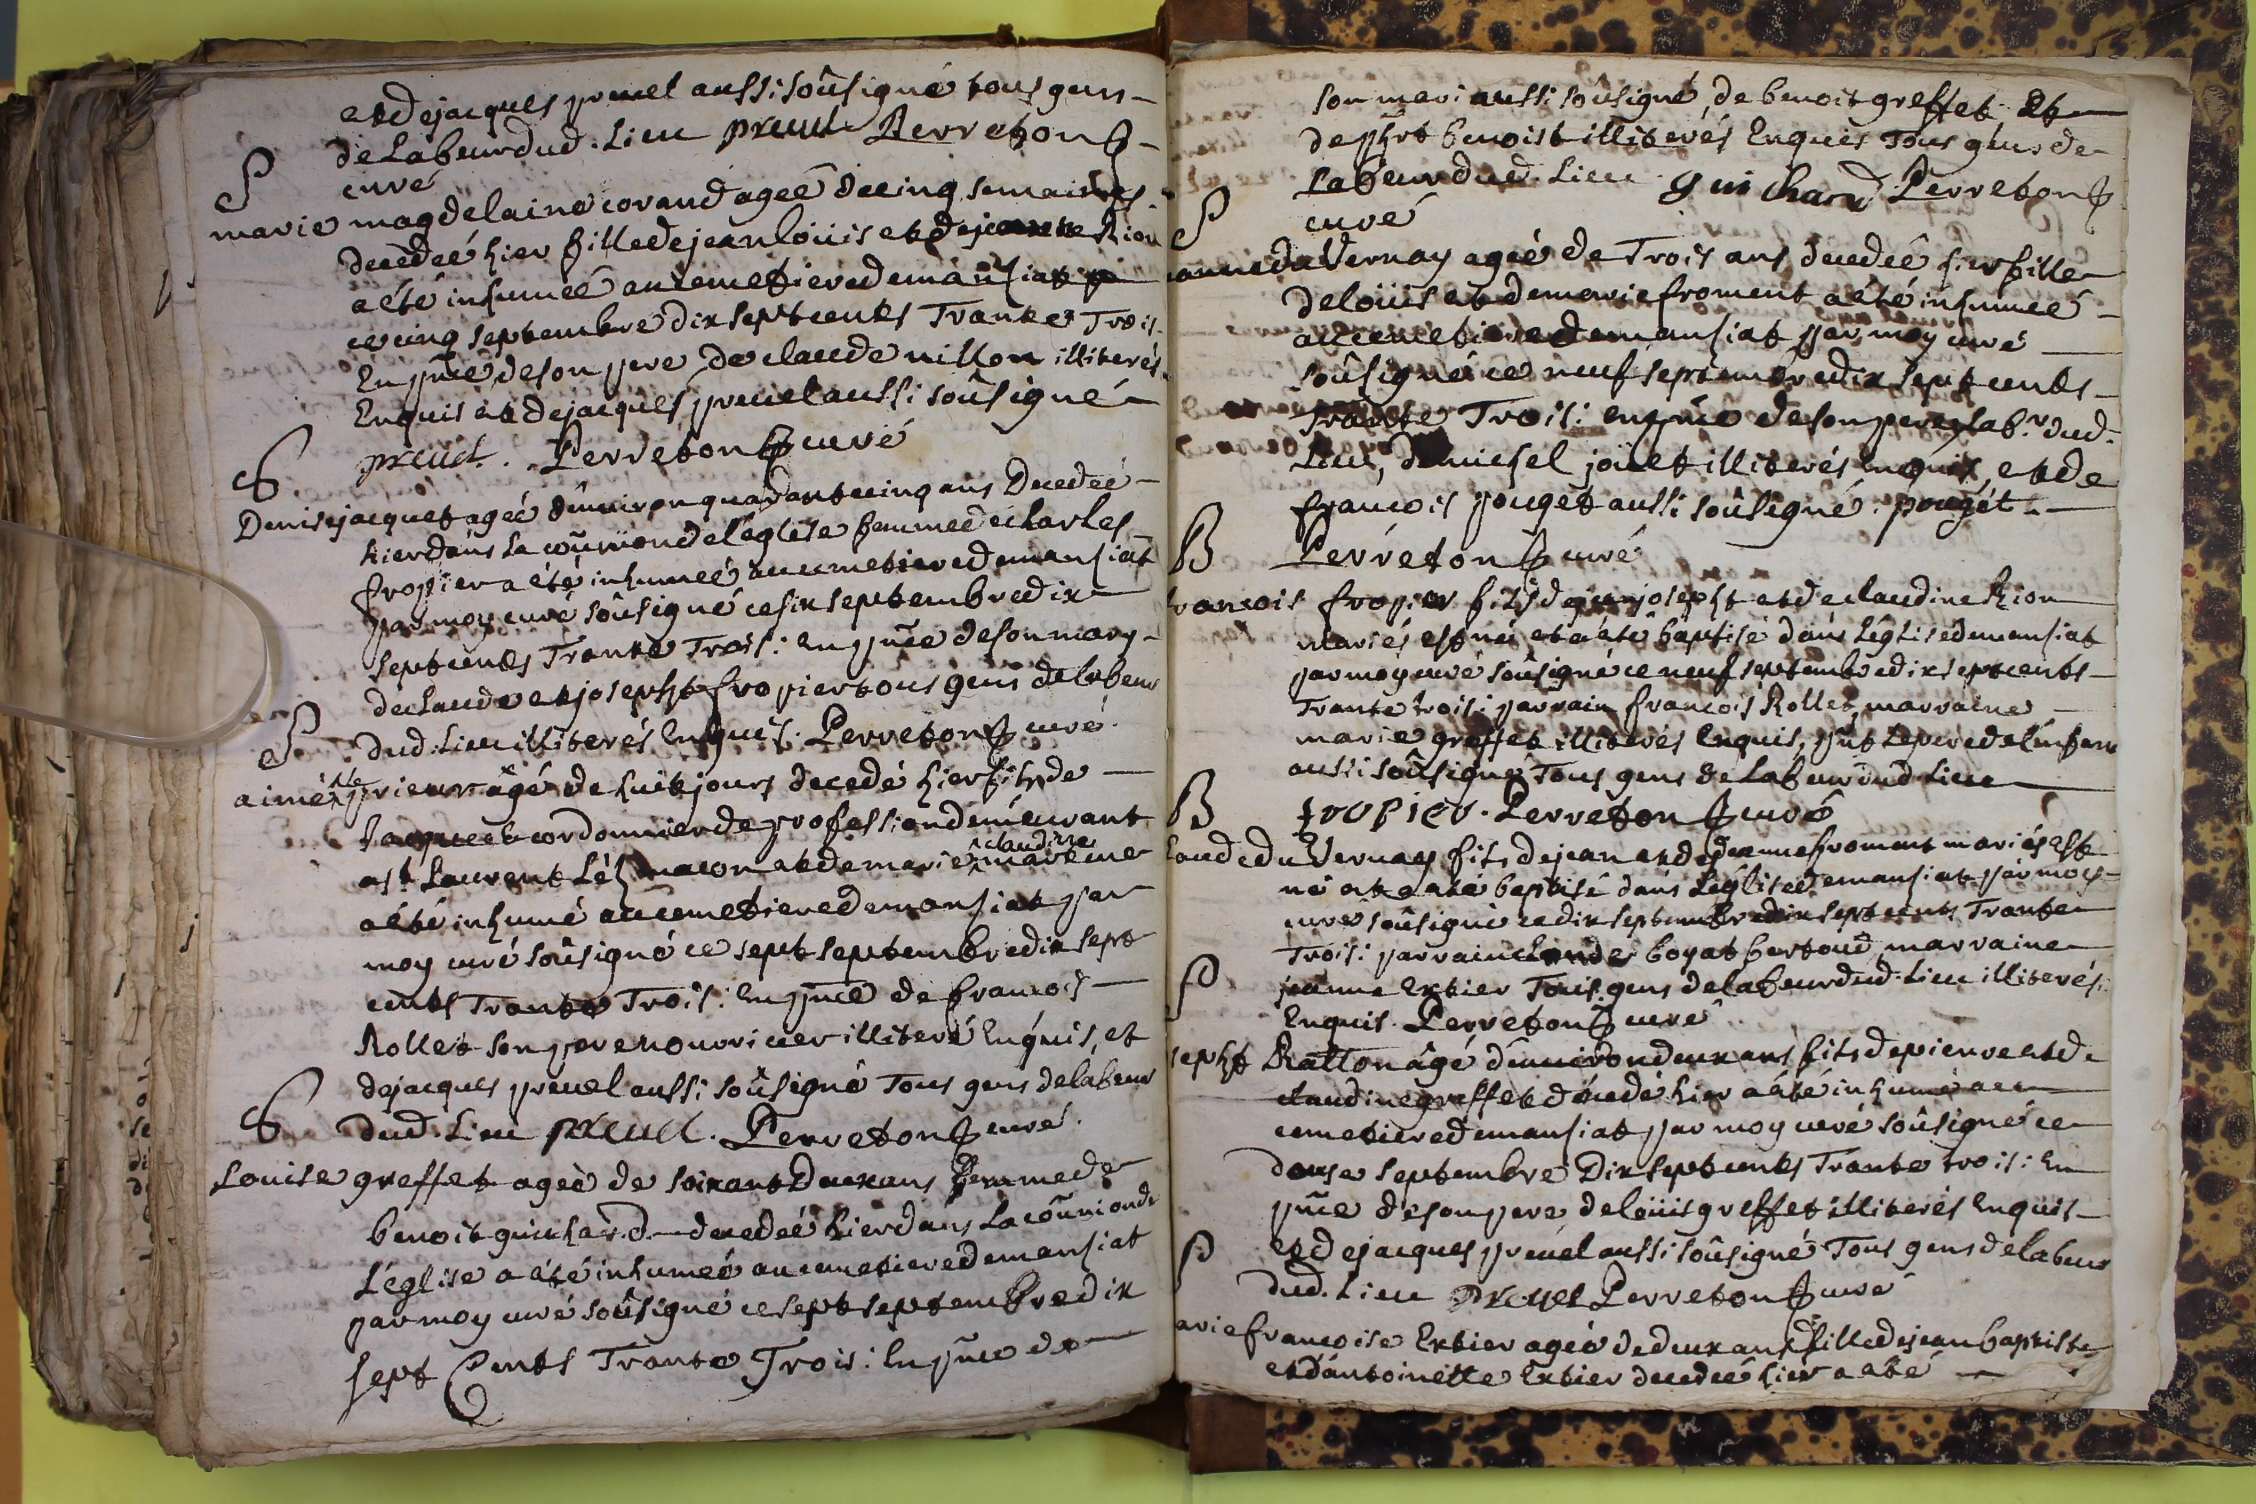 et de jacques preuel aussi soûsigné tous gens
de labeur dud. Lieu preuel Perreton
curé
S
marie magdelaine corand ageé de cinq semaines
decedeé hier fille de jean loüis et de jeanne Rion
a été inhumeé au cemetiere de mansiat
ce cinq septembre dix sept cents Trante Trois
En pnce de son pere, de claude nillon illiterés
Enquis et de jacques preuel aussi soûsigné
preuel. Perreton curé
S
Denise jacquet ageé d'environ quarant cinq ans Decedeé
hier dans la coñunion de l'église femme de charles
fropier a été inhumeé au cemetiere de mansiat
par moy curé soûsigné ce six septembre dix
sept cents Trante Trois: En pnce de son mary
de claude et josepht fropier tous gens de labeur
dud. Lieu illiterés Enquis. Perreton curé
S
aimé prieur âgé de huit jours decedé hier fils de
cordonnier de profession démeurant
a st Laurent Léz macon et de marie claudine
a été inhumé au cemetiere de mansiat par
moy curé soûsigné ce sept septembre dix sept
cents Trante Trois: En pnce de francois
Rollet son pere nourricier illiteré Enquis, et
de jacques preuel aussi soûsigné Tous gens de labeur
dud. Lieu preuel. Perreton curé.
S
Louise greffet ageé de soixant Deux ans femme de
benoit guichard decedeé hier dans La coñunion de
L'église a été inhumeé au cemetiere de mansiat
par moy curé soûsigné ce sept septembre dix
sept Cents Trante Trois: En pnce de
son mari aussi soûsigné, de benoit greffet Et
de benoist illiterés Enquis Tous gens de
Labeur dud. Lieu guichard Perreton
curé
S
anne du Vernay ageé de Trois ans decedeé hier fille
de loüis et de marie froment a été inhumeé
au cemetiere de mansiat par moy curé
soûsigné ce neuf septembre dix sept cents
Trante Trois: en pnce de son pere lab.r dud.
Lieu, de michel joüet illiterés enquis, et de
francois pouget aussi soûsigné. pougét
B
Perreton curé
rancois fropier fils de jean josepht et de claudine Rion
mariés est né et a été baptisé dans L'église de mansiat
par moy curé soûsigné ce neuf septembre dix sept cents
Trante trois: parrain francois Rollet, marraine
marie greffet illiterés Enquis, pnt Le pere de l'enfant
aussi soûsigné Tous gens de Labeur dud. Lieu
B
fropier. Perreton curé
laude du Vernay fils de jean et de jeanne froment mariés est
né et a été baptisé dans L'église de mansiat par moy
curé soûsigné ce dix septembre dix sept cents Trante
Trois: parrain claude boyat bertoud, marraine
S
jeanne Extier Tous gens de labeur dud. Lieu illiterés
Enquis. Perreton curé
sepht Ratton âgé d'environ deux ans fils de pierre et de
claudine greffet décedé hier a été inhumé au
cemetiere de mansiat par moy curé soûsigné ce
douse septembre Dix sept cents Trante trois: En
pnce de son pere de loüis greffet illiterés Enquis
et de jacques preuel aussi soûsigné Tous gens de labeur
S
dud. Lieu preuel Perreton curé
arie francoise Extier ageé de deux ans fille de jean baptiste
et d'antoinette Extier decedeé hier a été